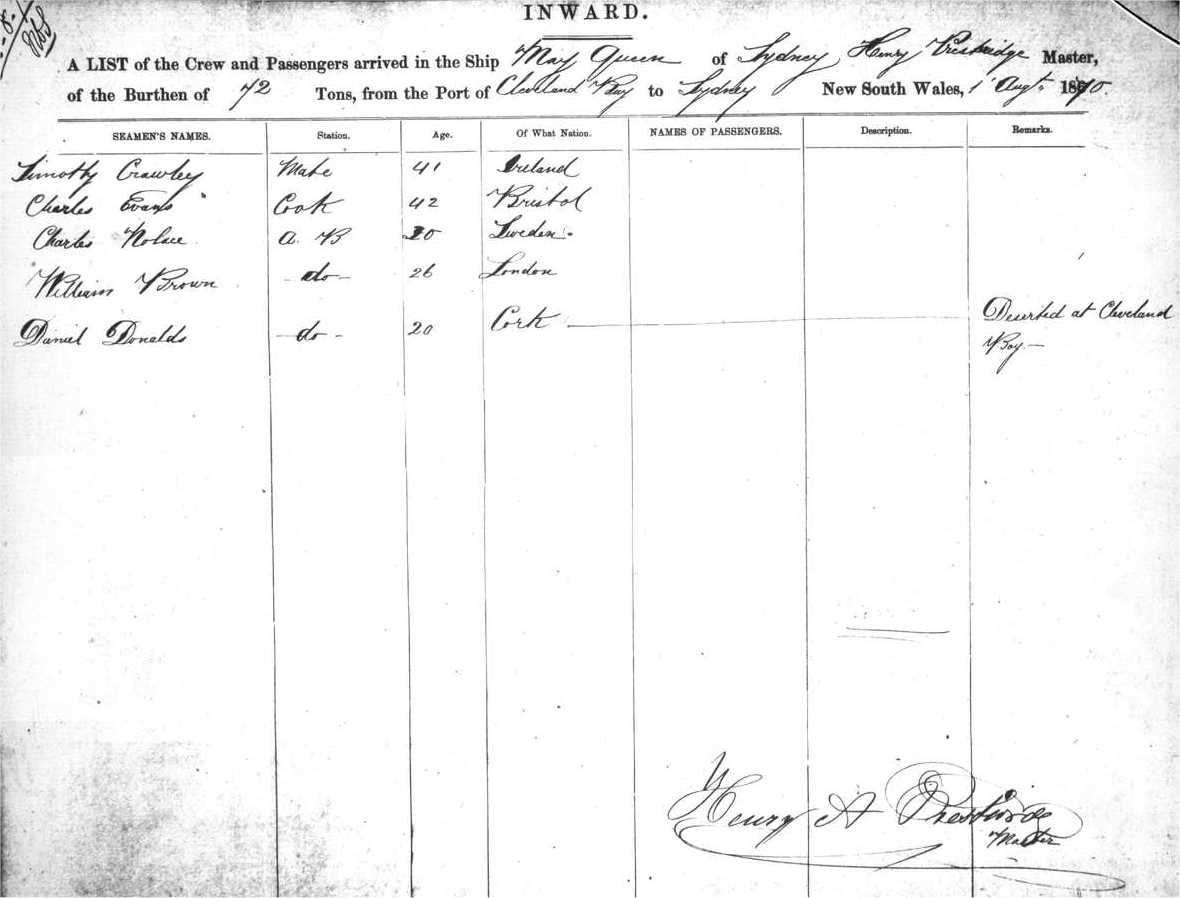 INWARD.
A LIST of the Crew and Passengers arrived in the Ship May Queen of Sydney, Henry Prestridge Master,
of the Burthen of 72 Tons, from the Port of Cleveland Bay to Sydney New South Wales, 1 Augt. 1870.
SEAMEN'S NAMES. Station. Age. Of What Nation. NAMES OF PASSENGERS. Description. Remarks.
Timothy Crawley Mate 41 Ireland
Charles Evans Cook 42 Bristol
Charles A. B Sweden
William Brown do 26 London
Daniel Donalds do 20 Cork Deserted at Cleveland
Bay
Henry A
Master